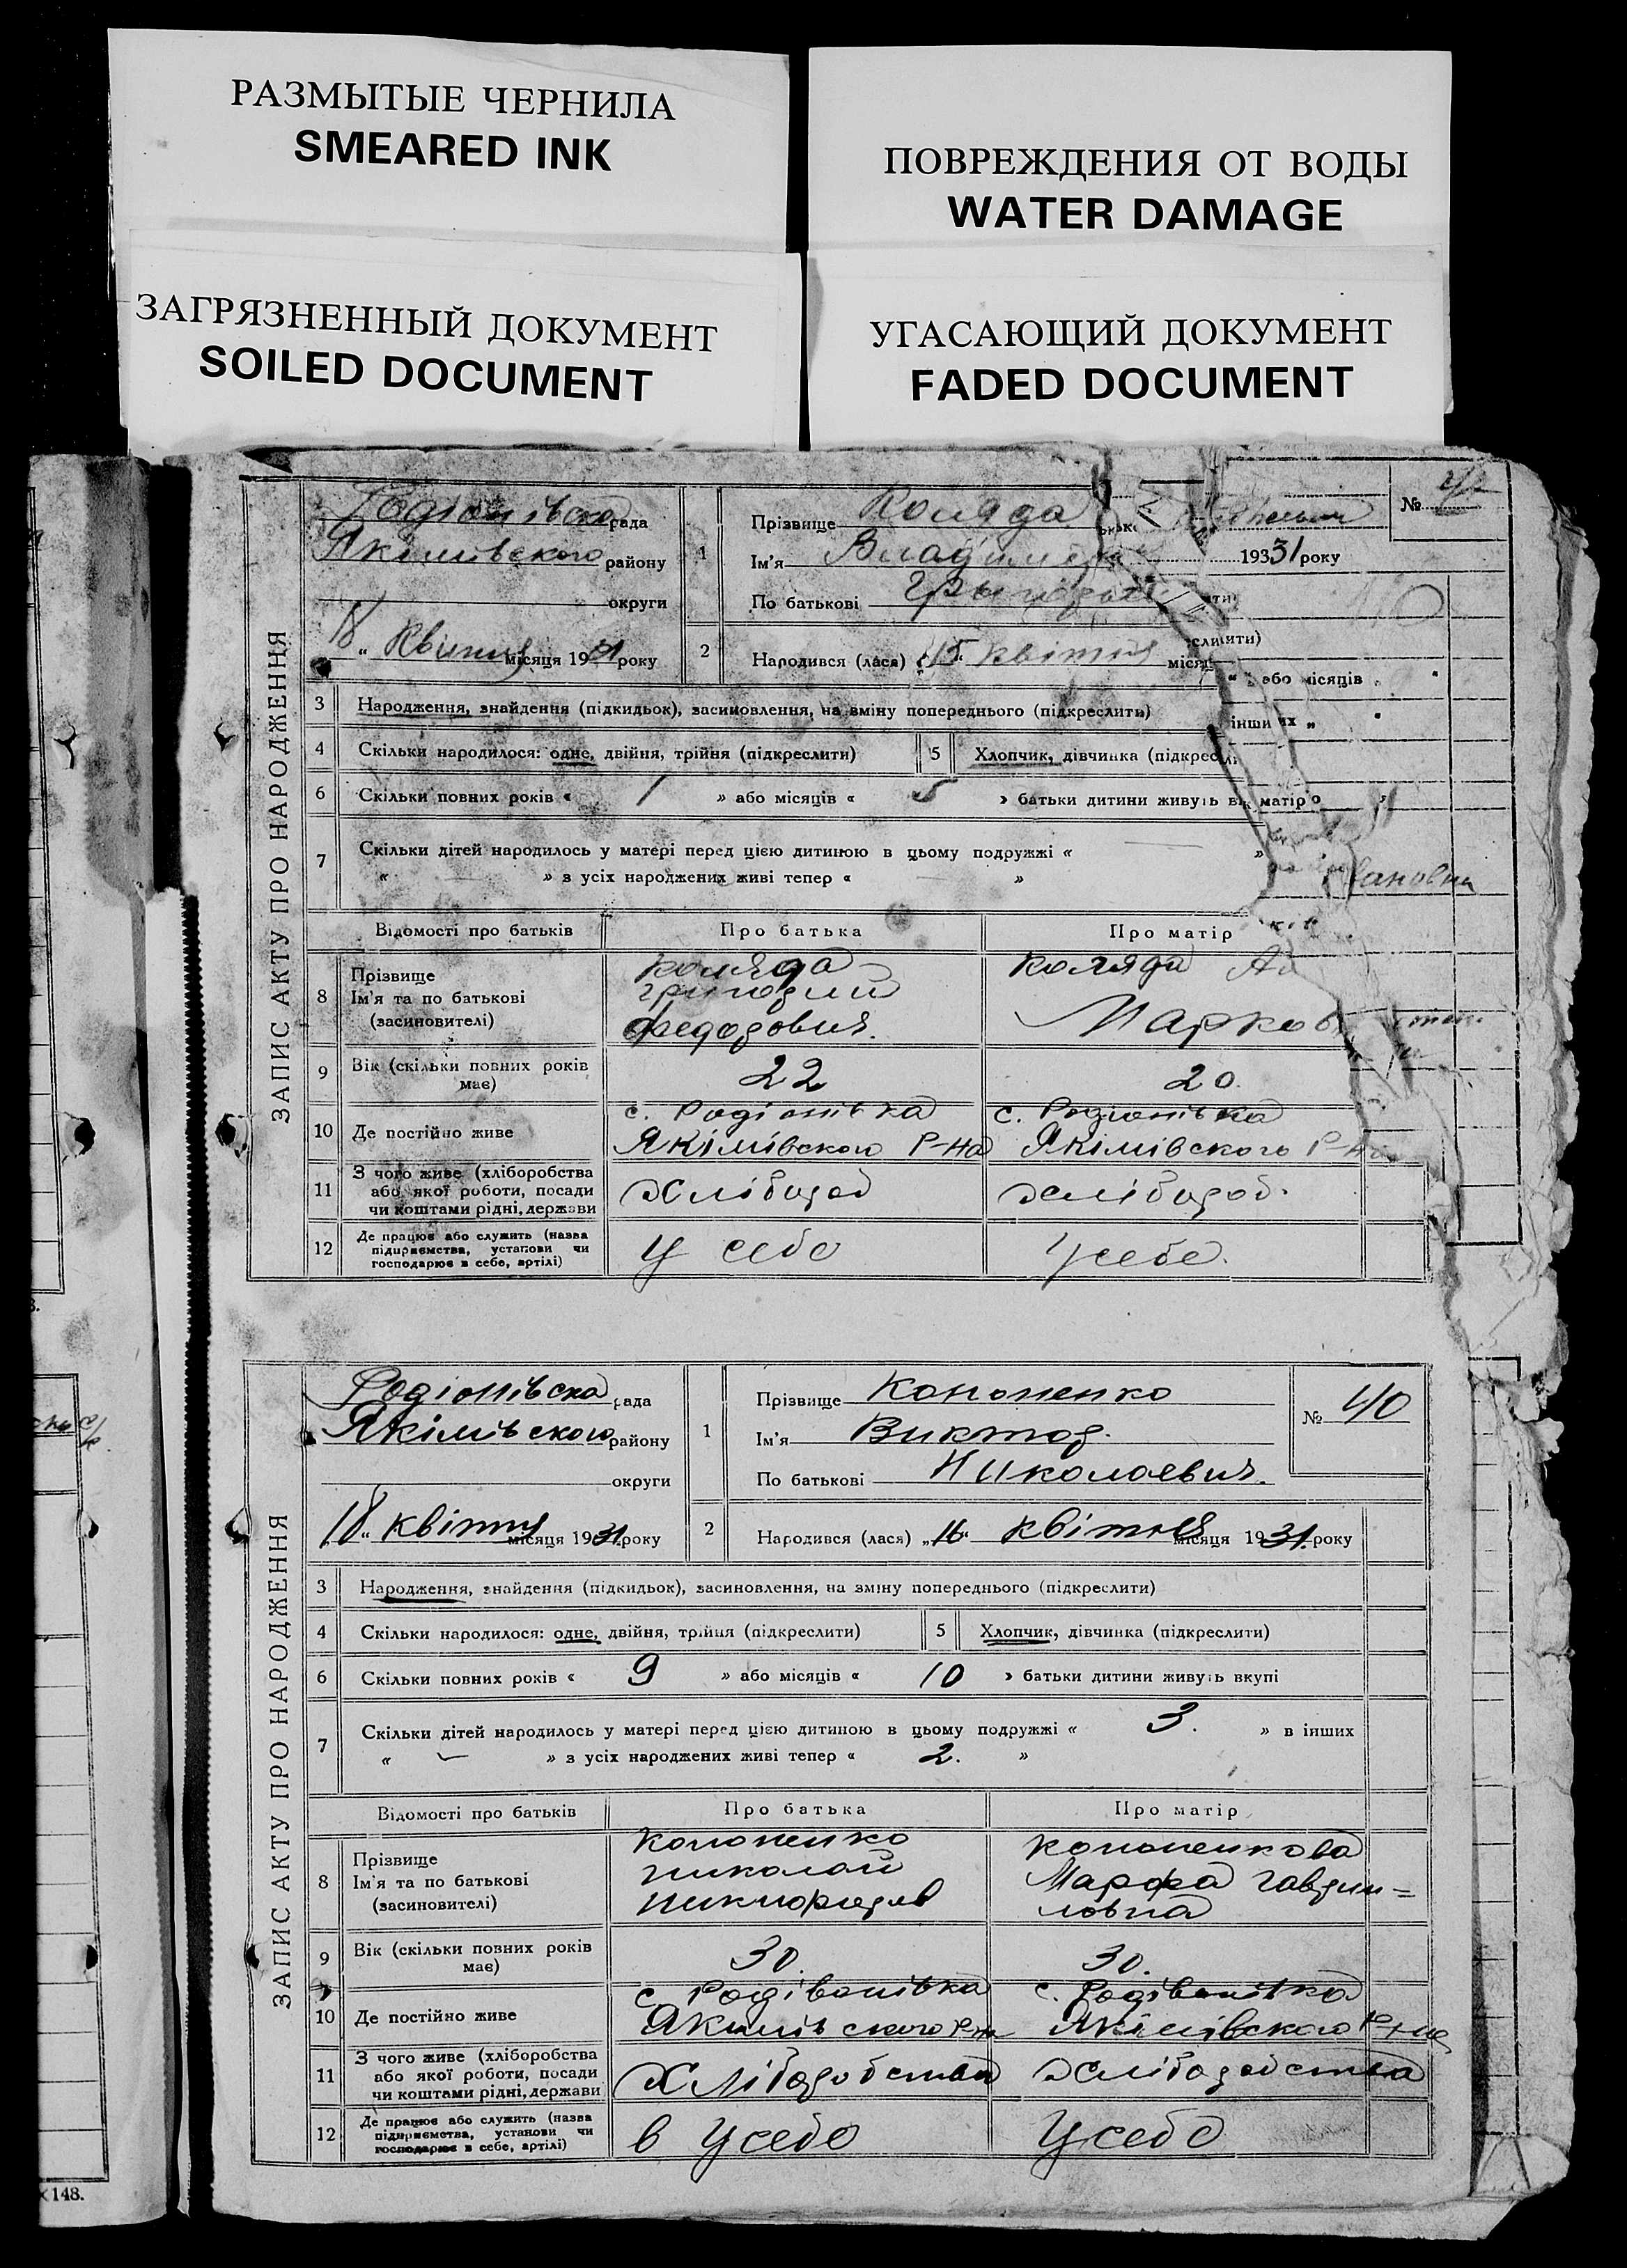 РАЗМЫТЫЕ ЧЕРНИЛА
SMEARED INK
ПОВРЕЖДЕНИЯ ОТ ВОДЫ
WATER DAMAGE
ЗАГРЯЗНЕННЫЙ ДОКУМЕНТ
SOILED DOCUMENT
УГАСАЮЩИЙ ДОКУМЕНТ
FADED DOCUMENT
ЗАПИС АКТУ ПРО НАРОДЖЕННЯ
Родіонівска рада
Якімівського району
округи
18 " Квітня місяця 1931 року
1
Прізвище Коляда
Ім'я Владимер
По батькові
№
1931 року
2
Народився (лася) "15" квітня
слити)
або місяців
3 Народження, знайдення (підкидьок), засиновлення, на зміну попереднього (підкреслити)
інших „
4 Скільки народилося: одне, двійня, трійня (підкреслити) 5 Хлопчик, дівчинка
6 Скільки повних років « 1 » або місяців « 5 » батьки дитини живуть
матір
7 Скільки дітей народилось у матері перед цією дитиною в цьому подружжі « — »
« — » з усіх народжених живі тепер « — »
Відомості про батьків Про батька Про матір
8 Прізвище
Ім'я та по батькові
(засиновителі)
Коляда
Григорий
Федорович.
Коляда
Марков
9 Вік (скільки повних років
має)
22
20.
10 Де постійно живе
с. Родіонівка
Якімівского Р-на
с. Родіонівка
Якімівского Р-на
11 З чого живе (хліборобства
або якої роботи, посади
чи коштами рідні, держави
Хлібороб
хлібороб.
12 Де працює або служить (назва
підприємства, установи чи
господарює в себе, артілі)
У себе
У себе.
ЗАПИС АКТУ ПРО НАРОДЖЕННЯ
Родіонівска рада
Якімівського району
округи
18 „ квітня місяця 1931 року
1
Прізвище Кононенко
Ім'я Виктор.
По батькові Николаевич.
№ 40
2
Народився (лася) „16“ квітня місяця 1931. року
3 Народження, знайдення (підкидьок), засиновлення, на зміну попереднього (підкреслити)
4 Скільки народилося: одне, двійня, трійня (підкреслити) 5 Хлопчик, дівчинка (підкреслити)
6 Скільки повних років « 9 » або місяців « 10 » батьки дитини живуть вкупі
7 Скільки дітей народилось у матері перед цією дитиною в цьому подружжі « 3. » в інших
« — » з усіх народжених живі тепер « 2. »
Відомості про батьків Про батька Про матір
8 Прізвище
Ім'я та по батькові
(засиновителі)
Кононенко
Николай
Никифоров
Кононенкова
Марфа Гаврии=
ловна
9 Вік (скільки повних років
має)
30.
30.
10 Де постійно живе
с. Родівонівка
Якимівского Р-н
с. Родівонівка
Якімівского Р-на
11 З чого живе (хліборобства
або якої роботи, посади
чи коштами рідні, держави
Хліборобства
хліборобства
12 Де працює або служить (назва
підприємства, установи чи
господарює в себе, артілі)
в У себе
У себе
148.